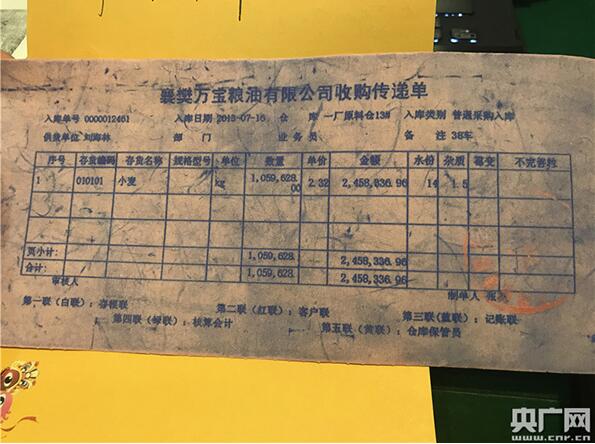 襄樊万宝粮油有限公司收购传递单
入库单号 0000012461 入库日期 2013-07-16 仓 库 一厂原料仓13# 入库类别 普通采购入库
供货单位 刘海林 部 门 业务员 备 注 38车
序号 存货编码 存货名称 规格型号 单位 数量 单价 金额 水份 杂质 霉变 不完善粒
1 010101 小麦 kg 1,059,628.00 2.32 2,458,336.96 14 1.5
页小计: 1,059,628. 2,458,336.96
合计: 1,059,628. 2,458,336.96
审核人 制单人
第一联(白联):存根联 第二联(红联):客户联 第三联(蓝联):记账联
第四联(绿联):核算会计 第五联(黄联):仓库保管员
央广网
www.cnr.cn